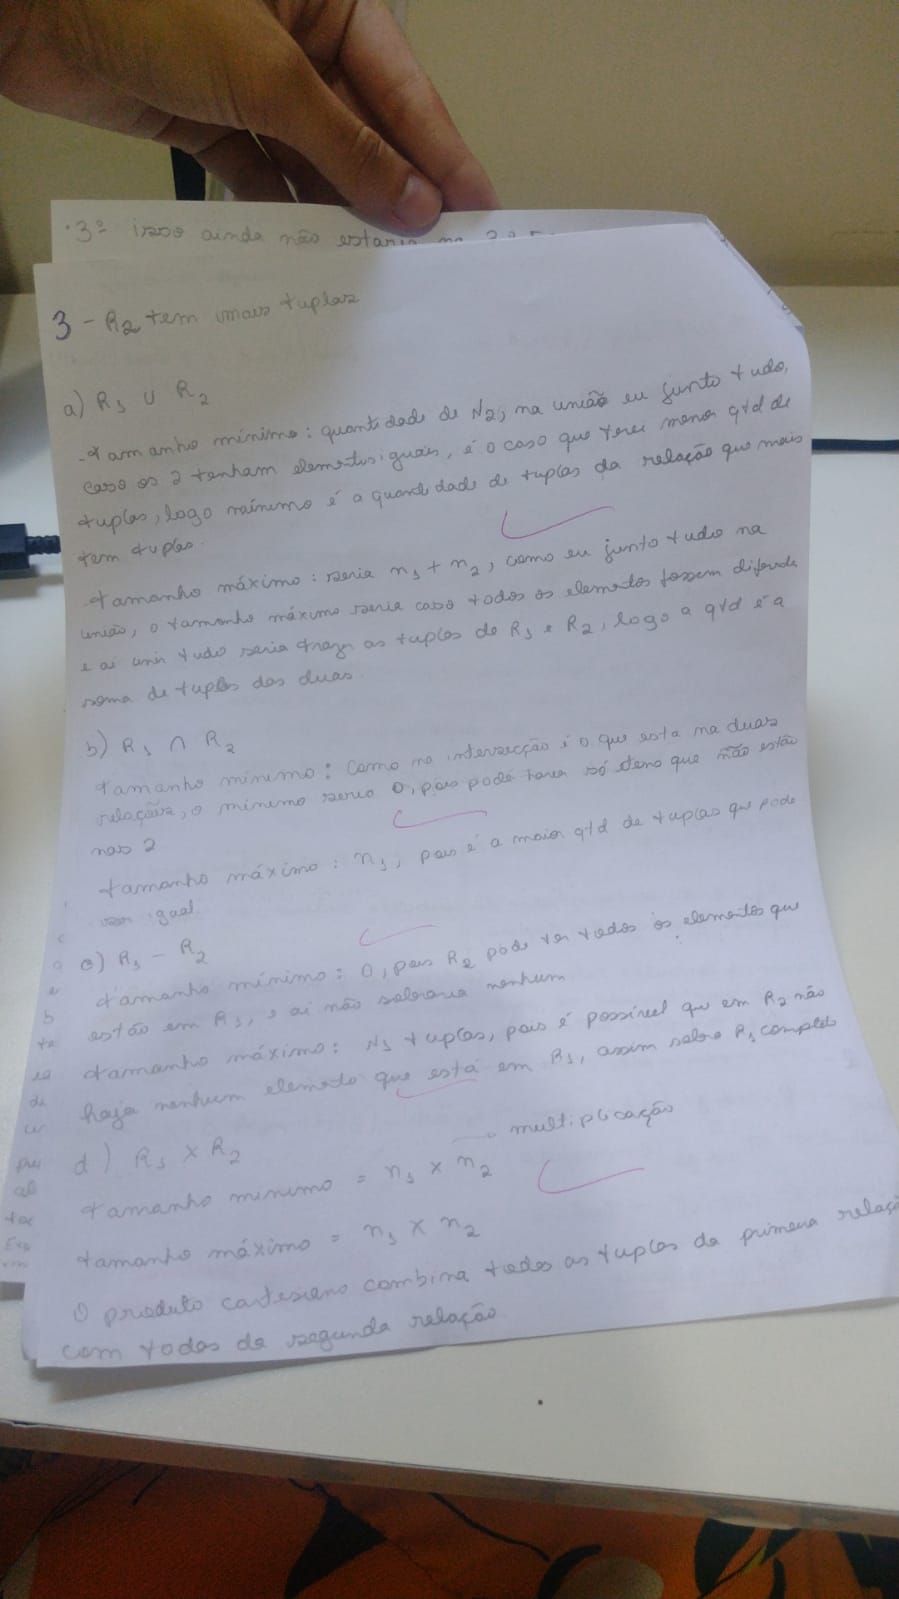 .3º isso ainda não estaria na
3 - R2 tem mais tuplas
a) R1 ∪ R2
.tamanho mínimo: quantidade de N2, na união eu junto tudo,
caso os 2 tenham elementos iguais, é o caso que terei menor qtd de
tuplas, logo mínimo é a quantidade de tuplas da relação que mais
tem tuplas.
.tamanho máximo: seria n1 + n2, como eu junto tudo na
união, o tamanho máximo seria caso todos os elementos fossem diferente
e ai unir tudo seria trazer as tuplas de R1 e R2, logo a qtd é a
soma de tuplas das duas.
b) R1 ∩ R2
tamanho mínimo: como na intersecção é o que esta na duas
relações, o mínimo seria 0, pois pode haver só que não estão
nas 2
tamanho máximo: n1, pois é a maior qtd de tuplas que pode
ser igual.
c) R1 - R2
tamanho mínimo: 0, pois R2 pode ter todos os elementos que
estão em R1, e ai não sobraria nenhum
tamanho máximo: N1 tuplas, pois é possível que em R2 não
haja nenhum elemento que está em R1, assim sobra R1 completo
d) R1 X R2
multiplicação
tamanho mínimo = n1 x n2
tamanho máximo = n1 x n2
O produto cartesiano combina todas as tuplas da primeira
com todas da segunda relação